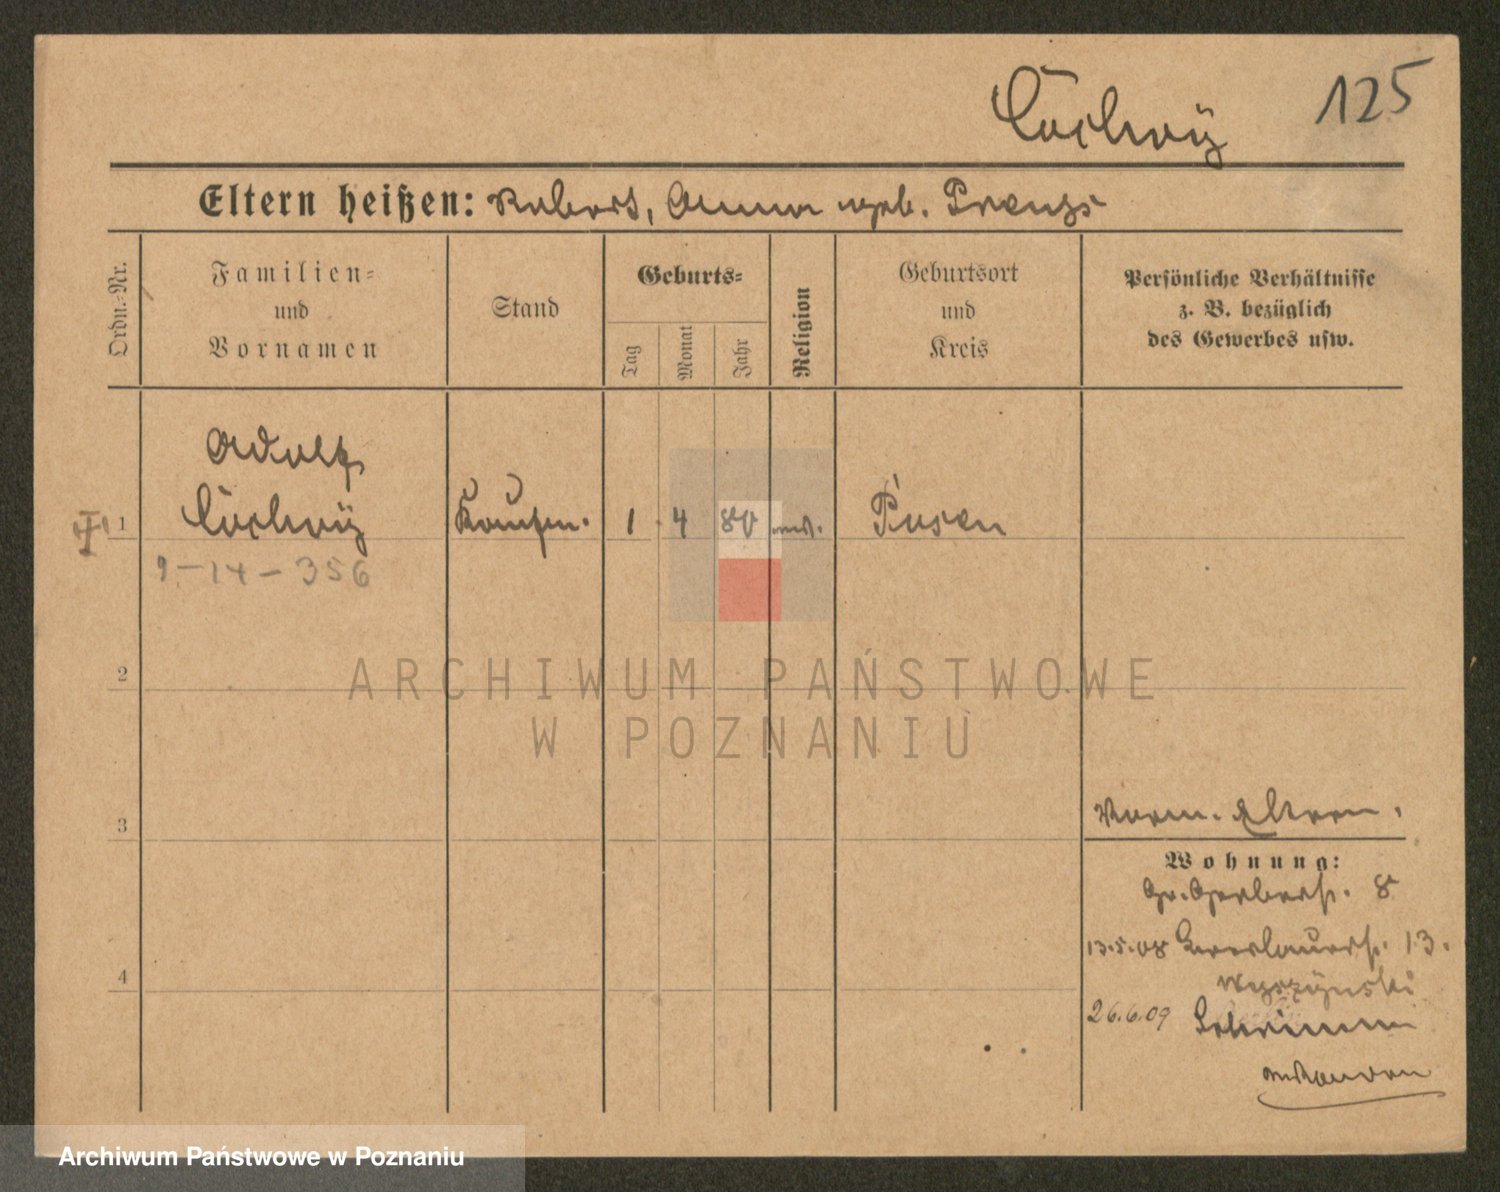 125
Eltern heißen: Robert, Anna geb. Prenzs
Ordn.-Nr.
Familien-
und
Vornamen
Stand
Geburts-
Tag
Monat
Jahr
Religion
Geburtsort
und
Kreis
Persönliche Verhältnisse
z. B. bezüglich
des Gewerbes usw.
Adolf
1
Kaufm.
1
4
80
Posen
9-14-356
2
ARCHIWUM PAŃSTWOWE
W POZNANIU
3
Eltern.
Wohnung:
Gr. Gerberst. 8
13.5.08 13.
4
Wyszynski
26.6.09 Schrimm
Archiwum Państwowe w Poznaniu